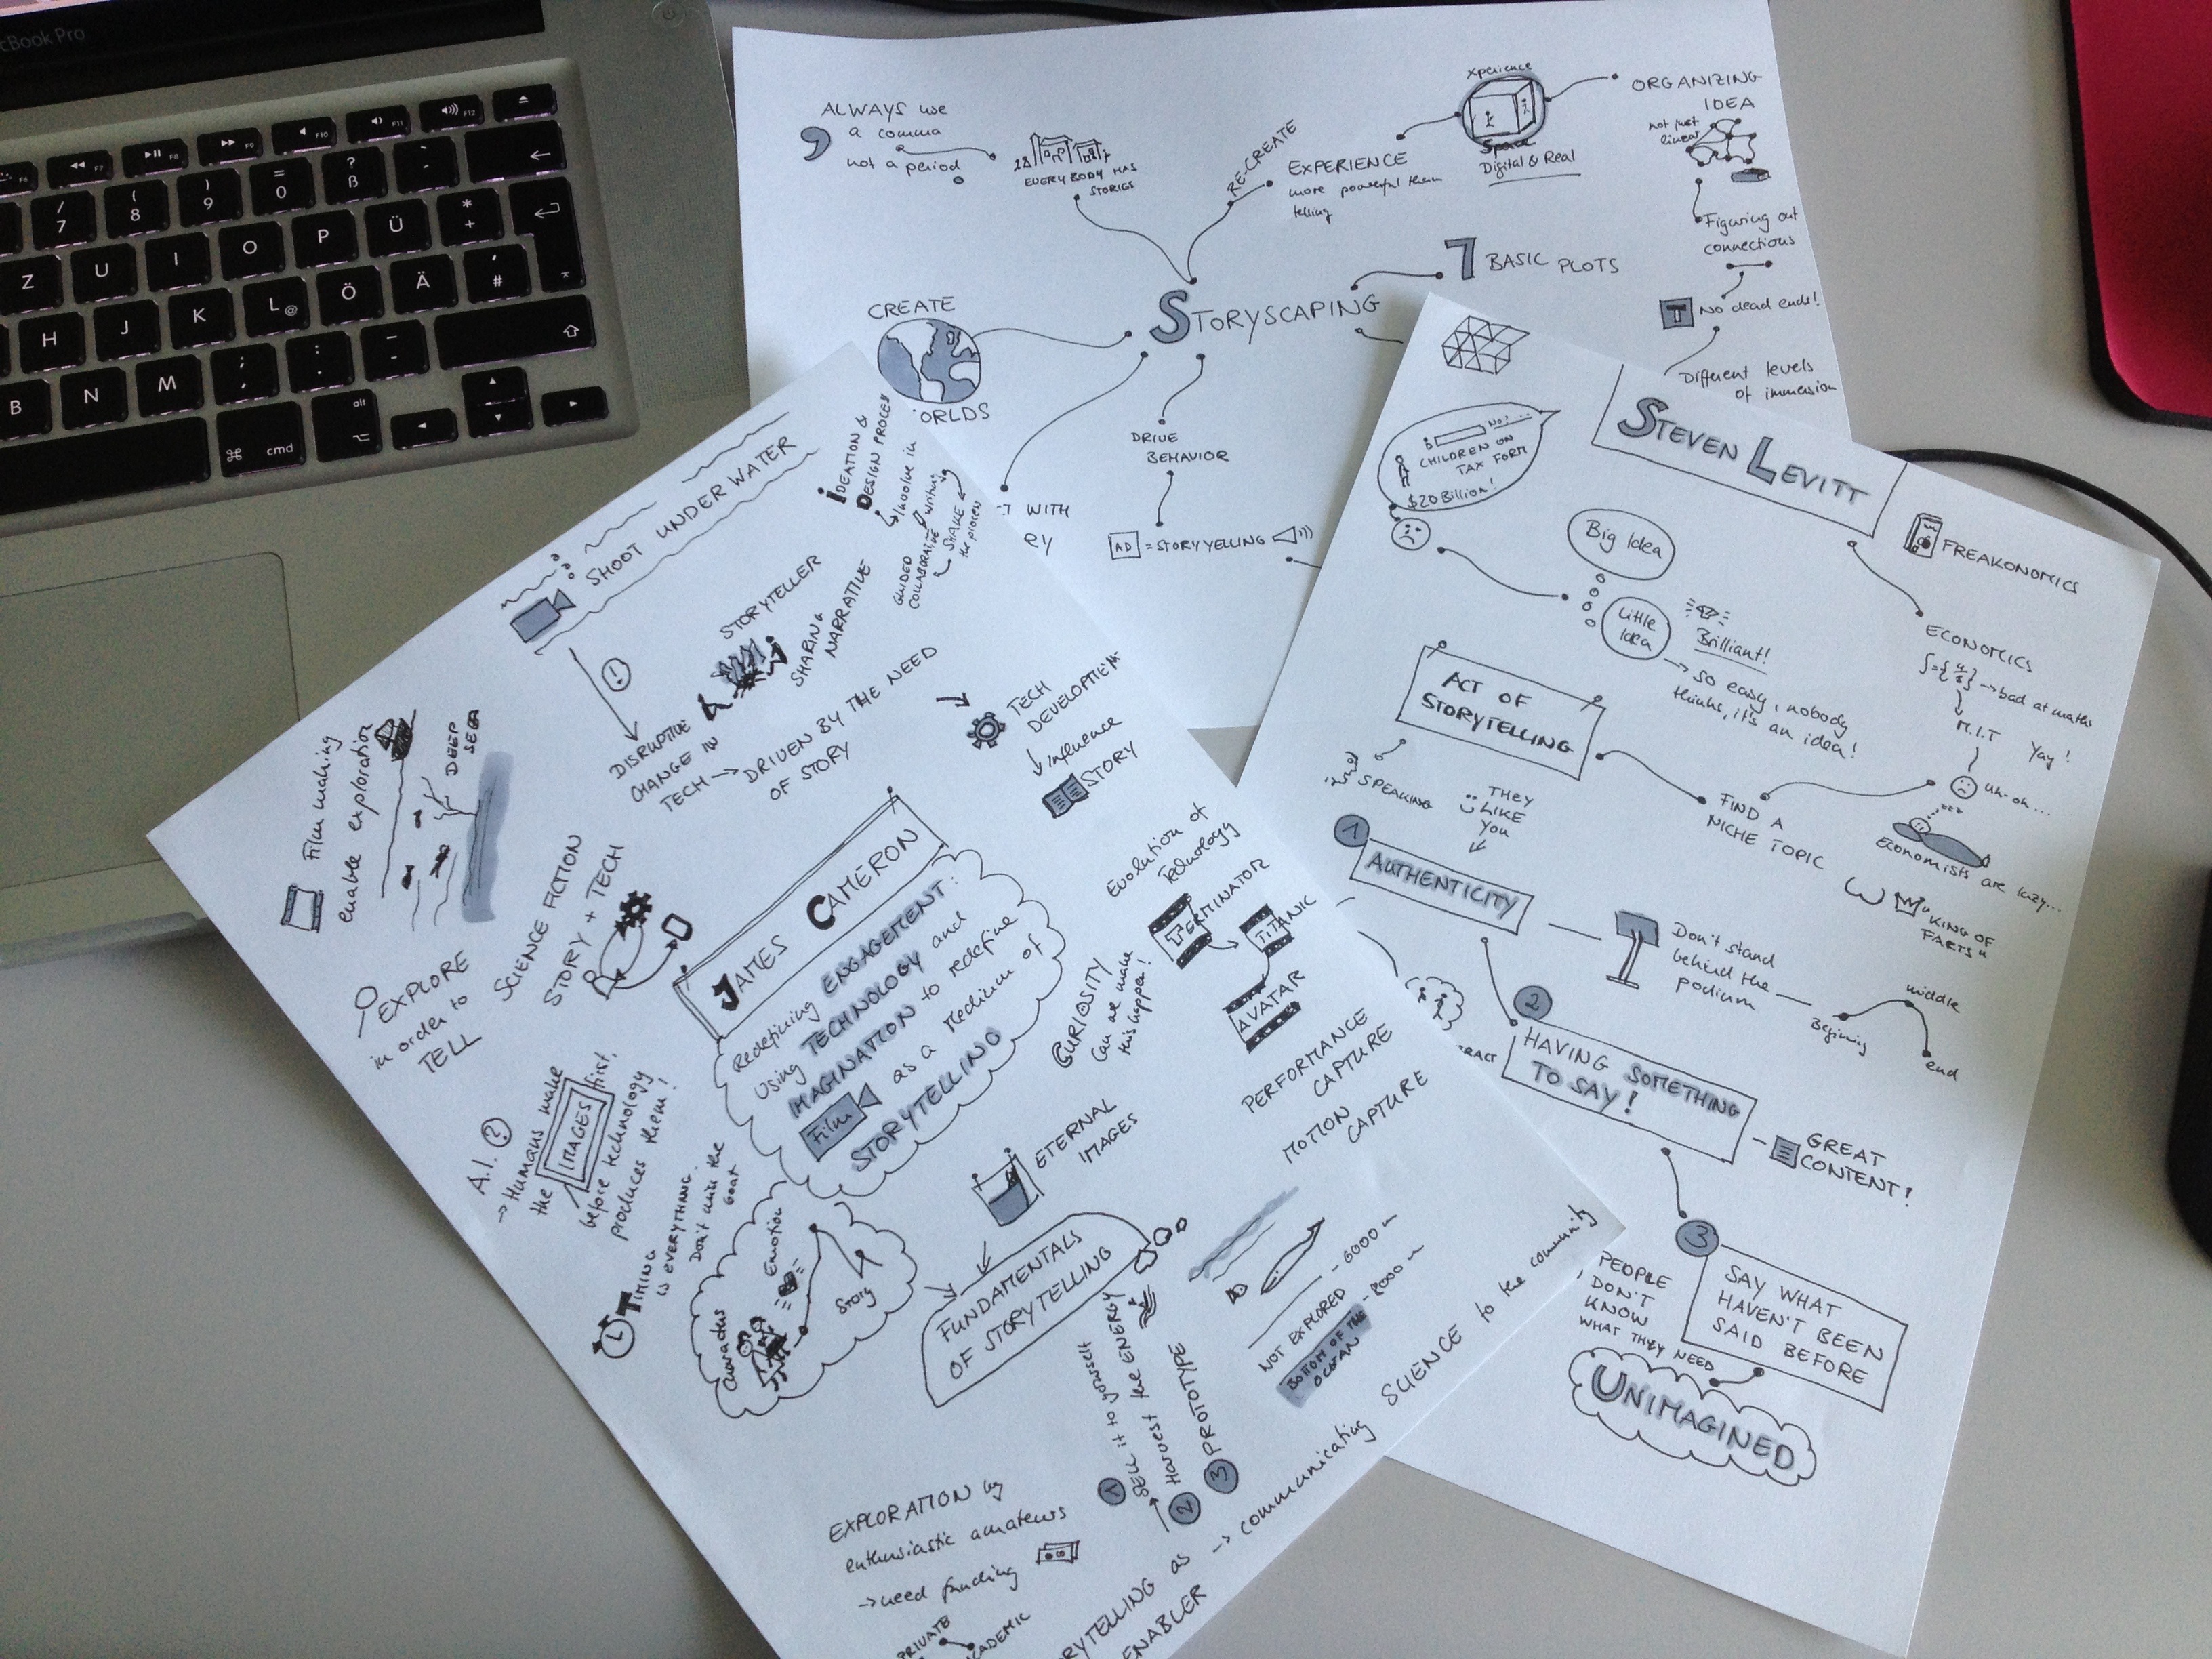 cBook Pro
F7
F8
F9
F10
F11
F12
/
7
(
8
)
9
=
0
?
ß
`
´
Z
U
I
O
P
Ü
*
+
H
J
K
L @
Ö
Ä
'
#
B
N
M
;
,
:
.
_
-
cmd
alt
ALWAYS use
a comma
not a period
EVERYBODY HAS
STORIES
RE-CREATE
EXPERIENCE
more powerful than
telling
Xperience
Space
Digital & Real
ORGANIZING
IDEA
not just
linear
Figuring out
connections
T No dead ends!
Different levels
of immersion
7 BASIC PLOTS
STORYSCAPING
CREATE
ORLDS
CT WITH
RY
DRIVE
BEHAVIOR
AD = STORYYELLING
STEVEN LEVITT
NO?...
CHILDREN ON
TAX FORM
$20 Billion!
Big Idea
Little
Idea
Brilliant!
→ so easy, nobody
thinks, it's an idea!
FREAKONOMICS
ECONOMICS
→ bad at maths
M.I.T Yay!
Uh-oh...
Economists are lazy...
"KING OF
FARTS"
ACT OF
STORYTELLING
SPEAKING
THEY
LIKE
YOU
FIND A
NICHE TOPIC
1
AUTHENTICITY
Don't stand
behind the
podium
Beginning
middle
end
2
HAVING SOMETHING
TO SAY!
GREAT
CONTENT!
3
SAY WHAT
HAVEN'T BEEN
SAID BEFORE
PEOPLE
DON'T
KNOW
WHAT THEY NEED
UNIMAGINED
RACT
SHOOT UNDER WATER
IDEATION &
DESIGN PROCESS
↳ Involve in
writing
GUIDED
COLLABORATIVE
SHAKE
the process
STORYTELLER
&
SHARING
NARRATIVE
DISRUPTIVE
CHANGE IN
TECH → DRIVEN BY THE NEED
OF STORY
TECH
DEVELOPMEN
↓ influence
STORY
Film making
enable exploration
DEEP
SEA
SCIENCE FICTION
STORY + TECH
EXPLORE
in order to
TELL
JAMES CAMERON
Redefining ENGAGEMENT:
Using TECHNOLOGY and
IMAGINATION to redefine
Film as a Medium of
STORYTELLING
Evolution of
Technology
TERMINATOR
TITANIC
AVATAR
CURIOSITY
Can we make
this happen!
PERFORMANCE
CAPTURE
MOTION
CAPTURE
A.I. ?
→ Humans make
the IMAGES first,
before technology
produces them!
TIMING
is EVERYTHING.
Don't miss the
boat
Characters
Emotion
Story
ETERNAL
IMAGES
FUNDAMENTALS
OF STORYTELLING
1 SELL it to yourself
2 Harvest the ENERGY
3 PROTOTYPE
- 6000 m
NOT EXPLORED - 8000 m
BOTTOM OF THE
OCEAN
EXPLORATION by
enthusiastic amateurs
→ need funding
PRIVATE
ACADEMIC
RYTELLING as → communicating SCIENCE to the community
ENABLER